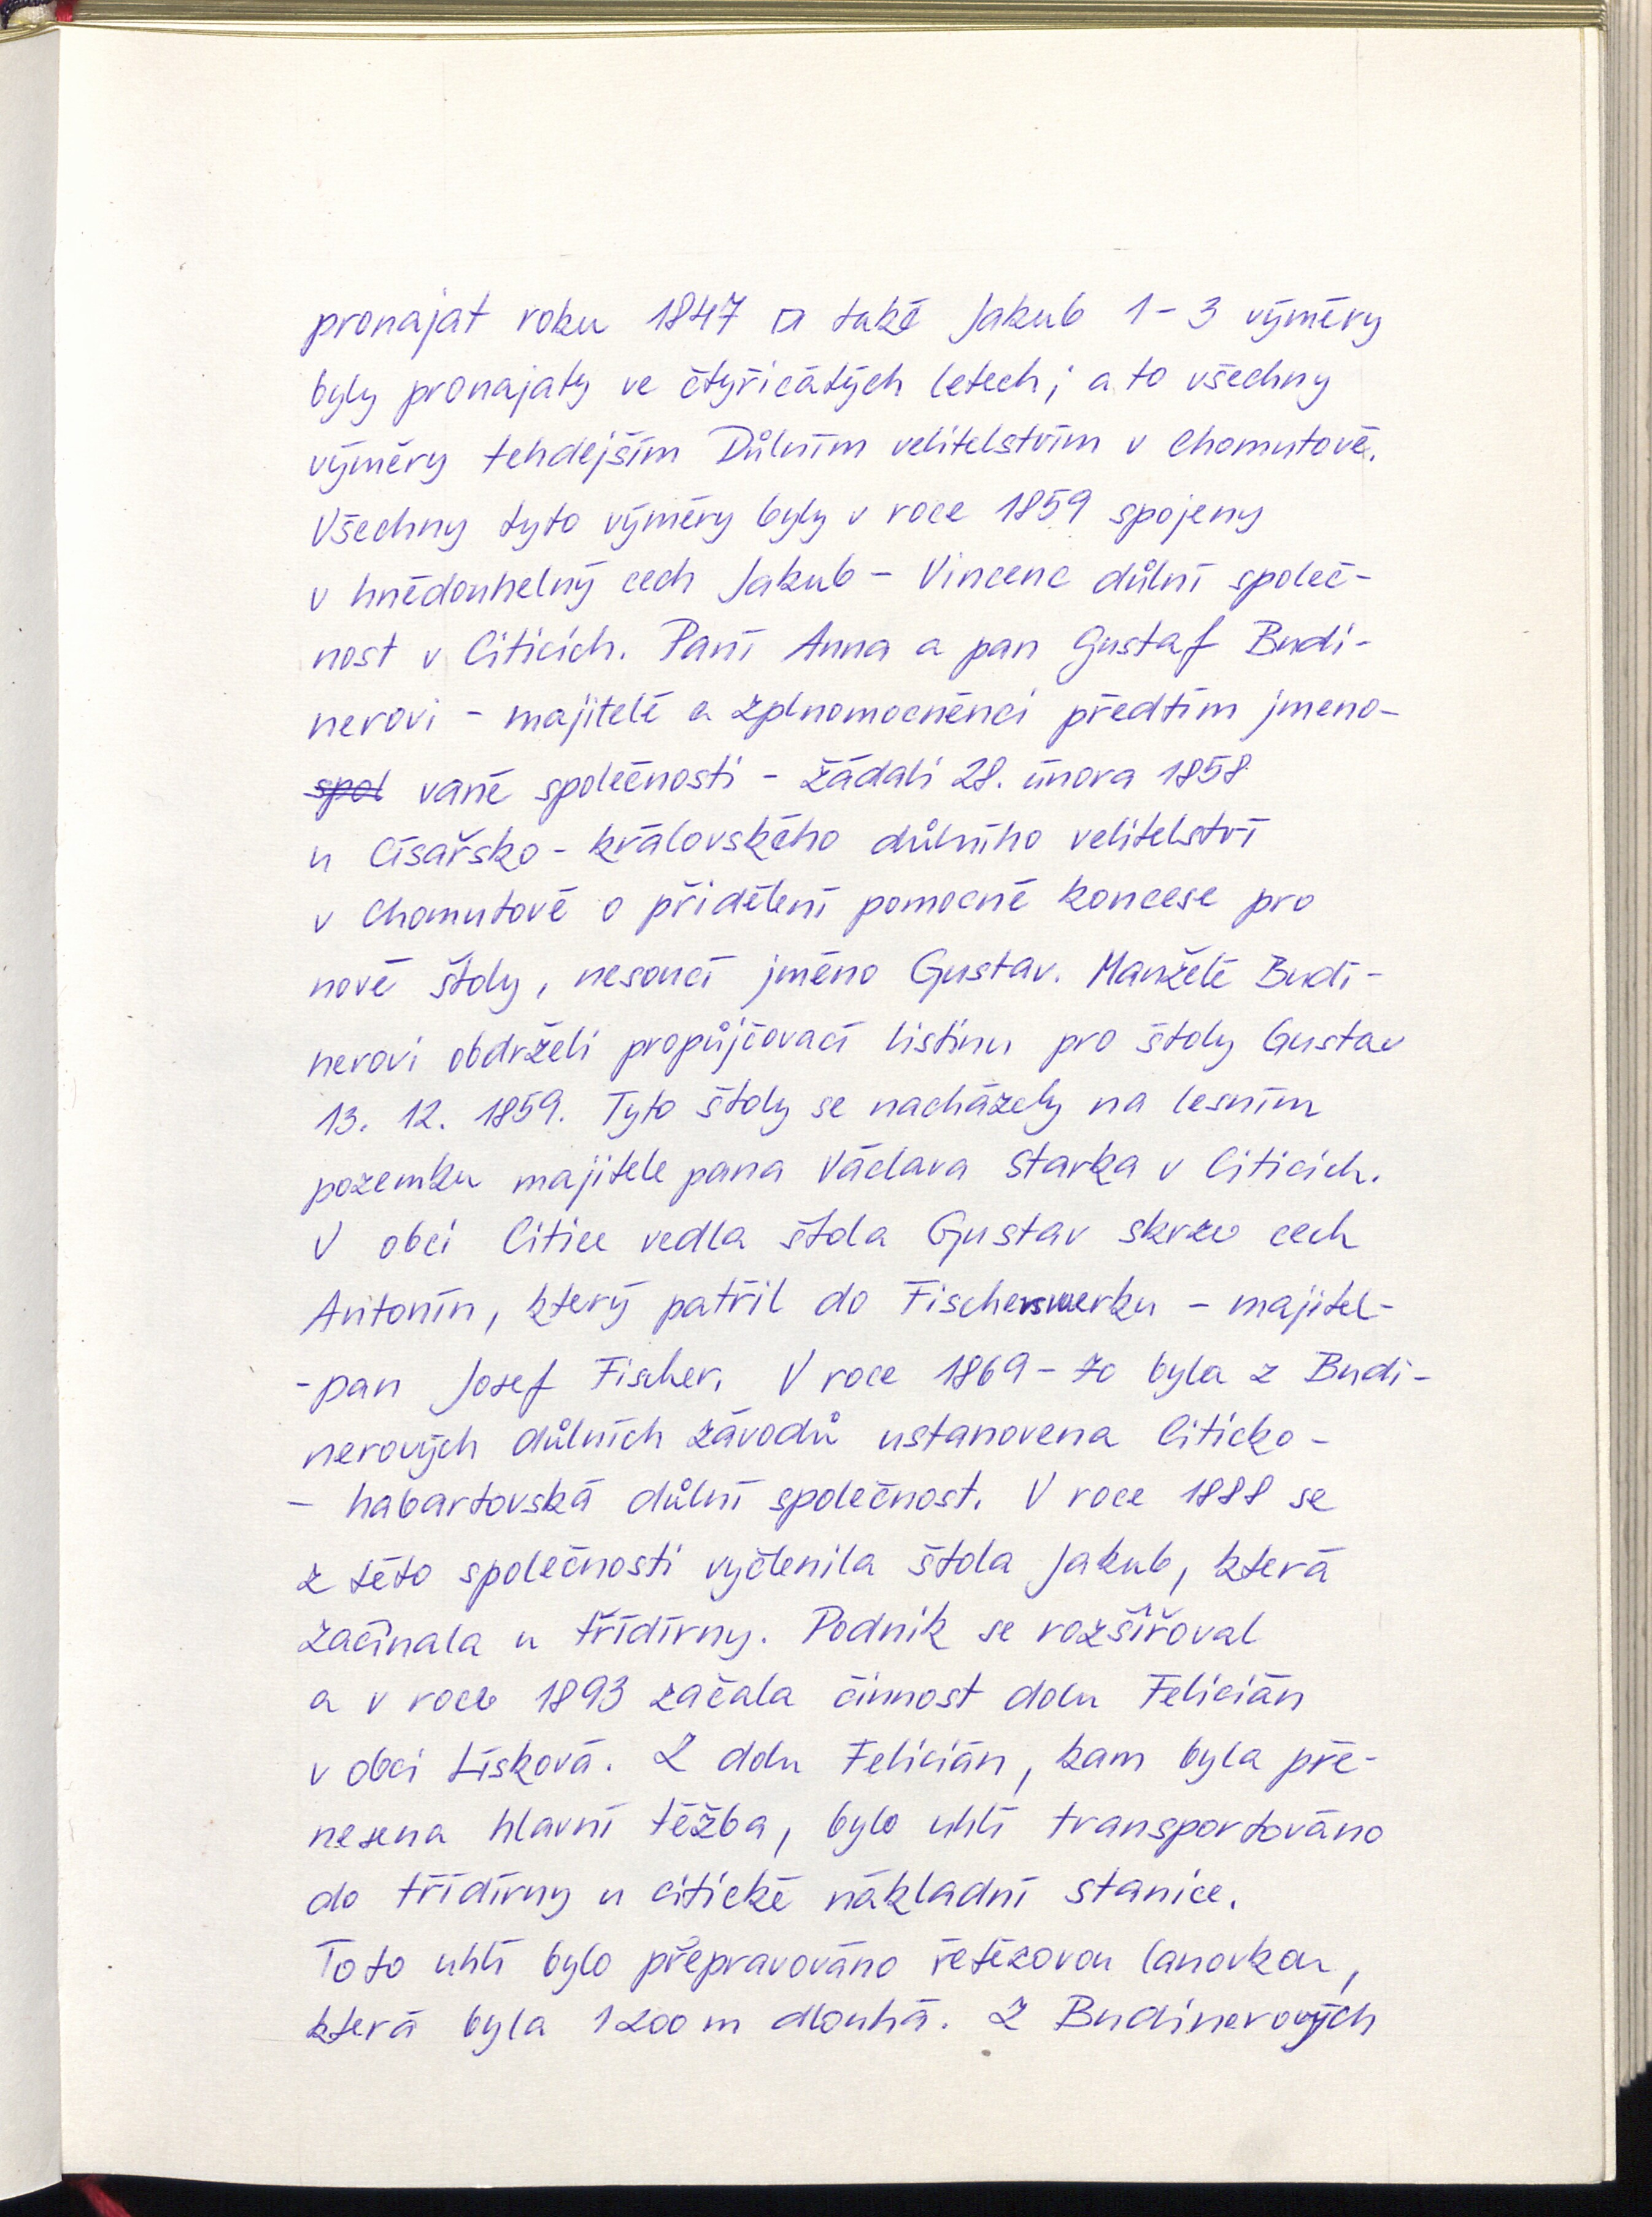 pronajat roku 1847 a také Jakub 1-3 výměry
byly pronajaty ve čtyřicátých letech; a to všechny
výměry tehdejším Důlním velitelstvím v Chomutově.
Všechny tyto výměry byly v roce 1859 spojeny
v hnědouhelný cech Jakub - Vincenc důlní společ-
nost v Citicích. Paní Anna a pan Gustaf Budi-
nerovi - majitelé a zplnomocněnci předtím jmeno-
spol vané společnosti - žádali 28. února 1858
u Císařsko - královského důlního velitelství
v Chomutově o přidělení pomocné koncese pro
nové štoly, nesoucí jméno Gustav. Manželé Budi-
nerovi obdrželi propůjčovací listinu pro štoly Gustav
13. 12. 1859. Tyto štoly se nacházely na lesním
pozemku majitele pana Václava Starka v Citicích.
V obci Citice vedla štola Gustav skrze cech
Antonín, který patřil do Fischerswerku - majitel-
-pan Josef Fischer. V roce 1869-70 byla z Budi-
nerových důlních závodů ustanovena Citicko-
- habartovská důlní společnost. V roce 1888 se
z této společnosti vyčlenila štola Jakub, která
začínala u třídírny. Podnik se rozšiřoval
a v roce 1893 začala činnost dolu Felicián
v obci Lísková. Z dolu Felicián, kam byla pře-
nesena hlavní těžba, bylo uhlí transportováno
do třídírny u citické nákladní stanice.
Toto uhlí bylo přepravováno řetězovou lanovkou,
která byla 1200 m dlouhá. Z Budinerových